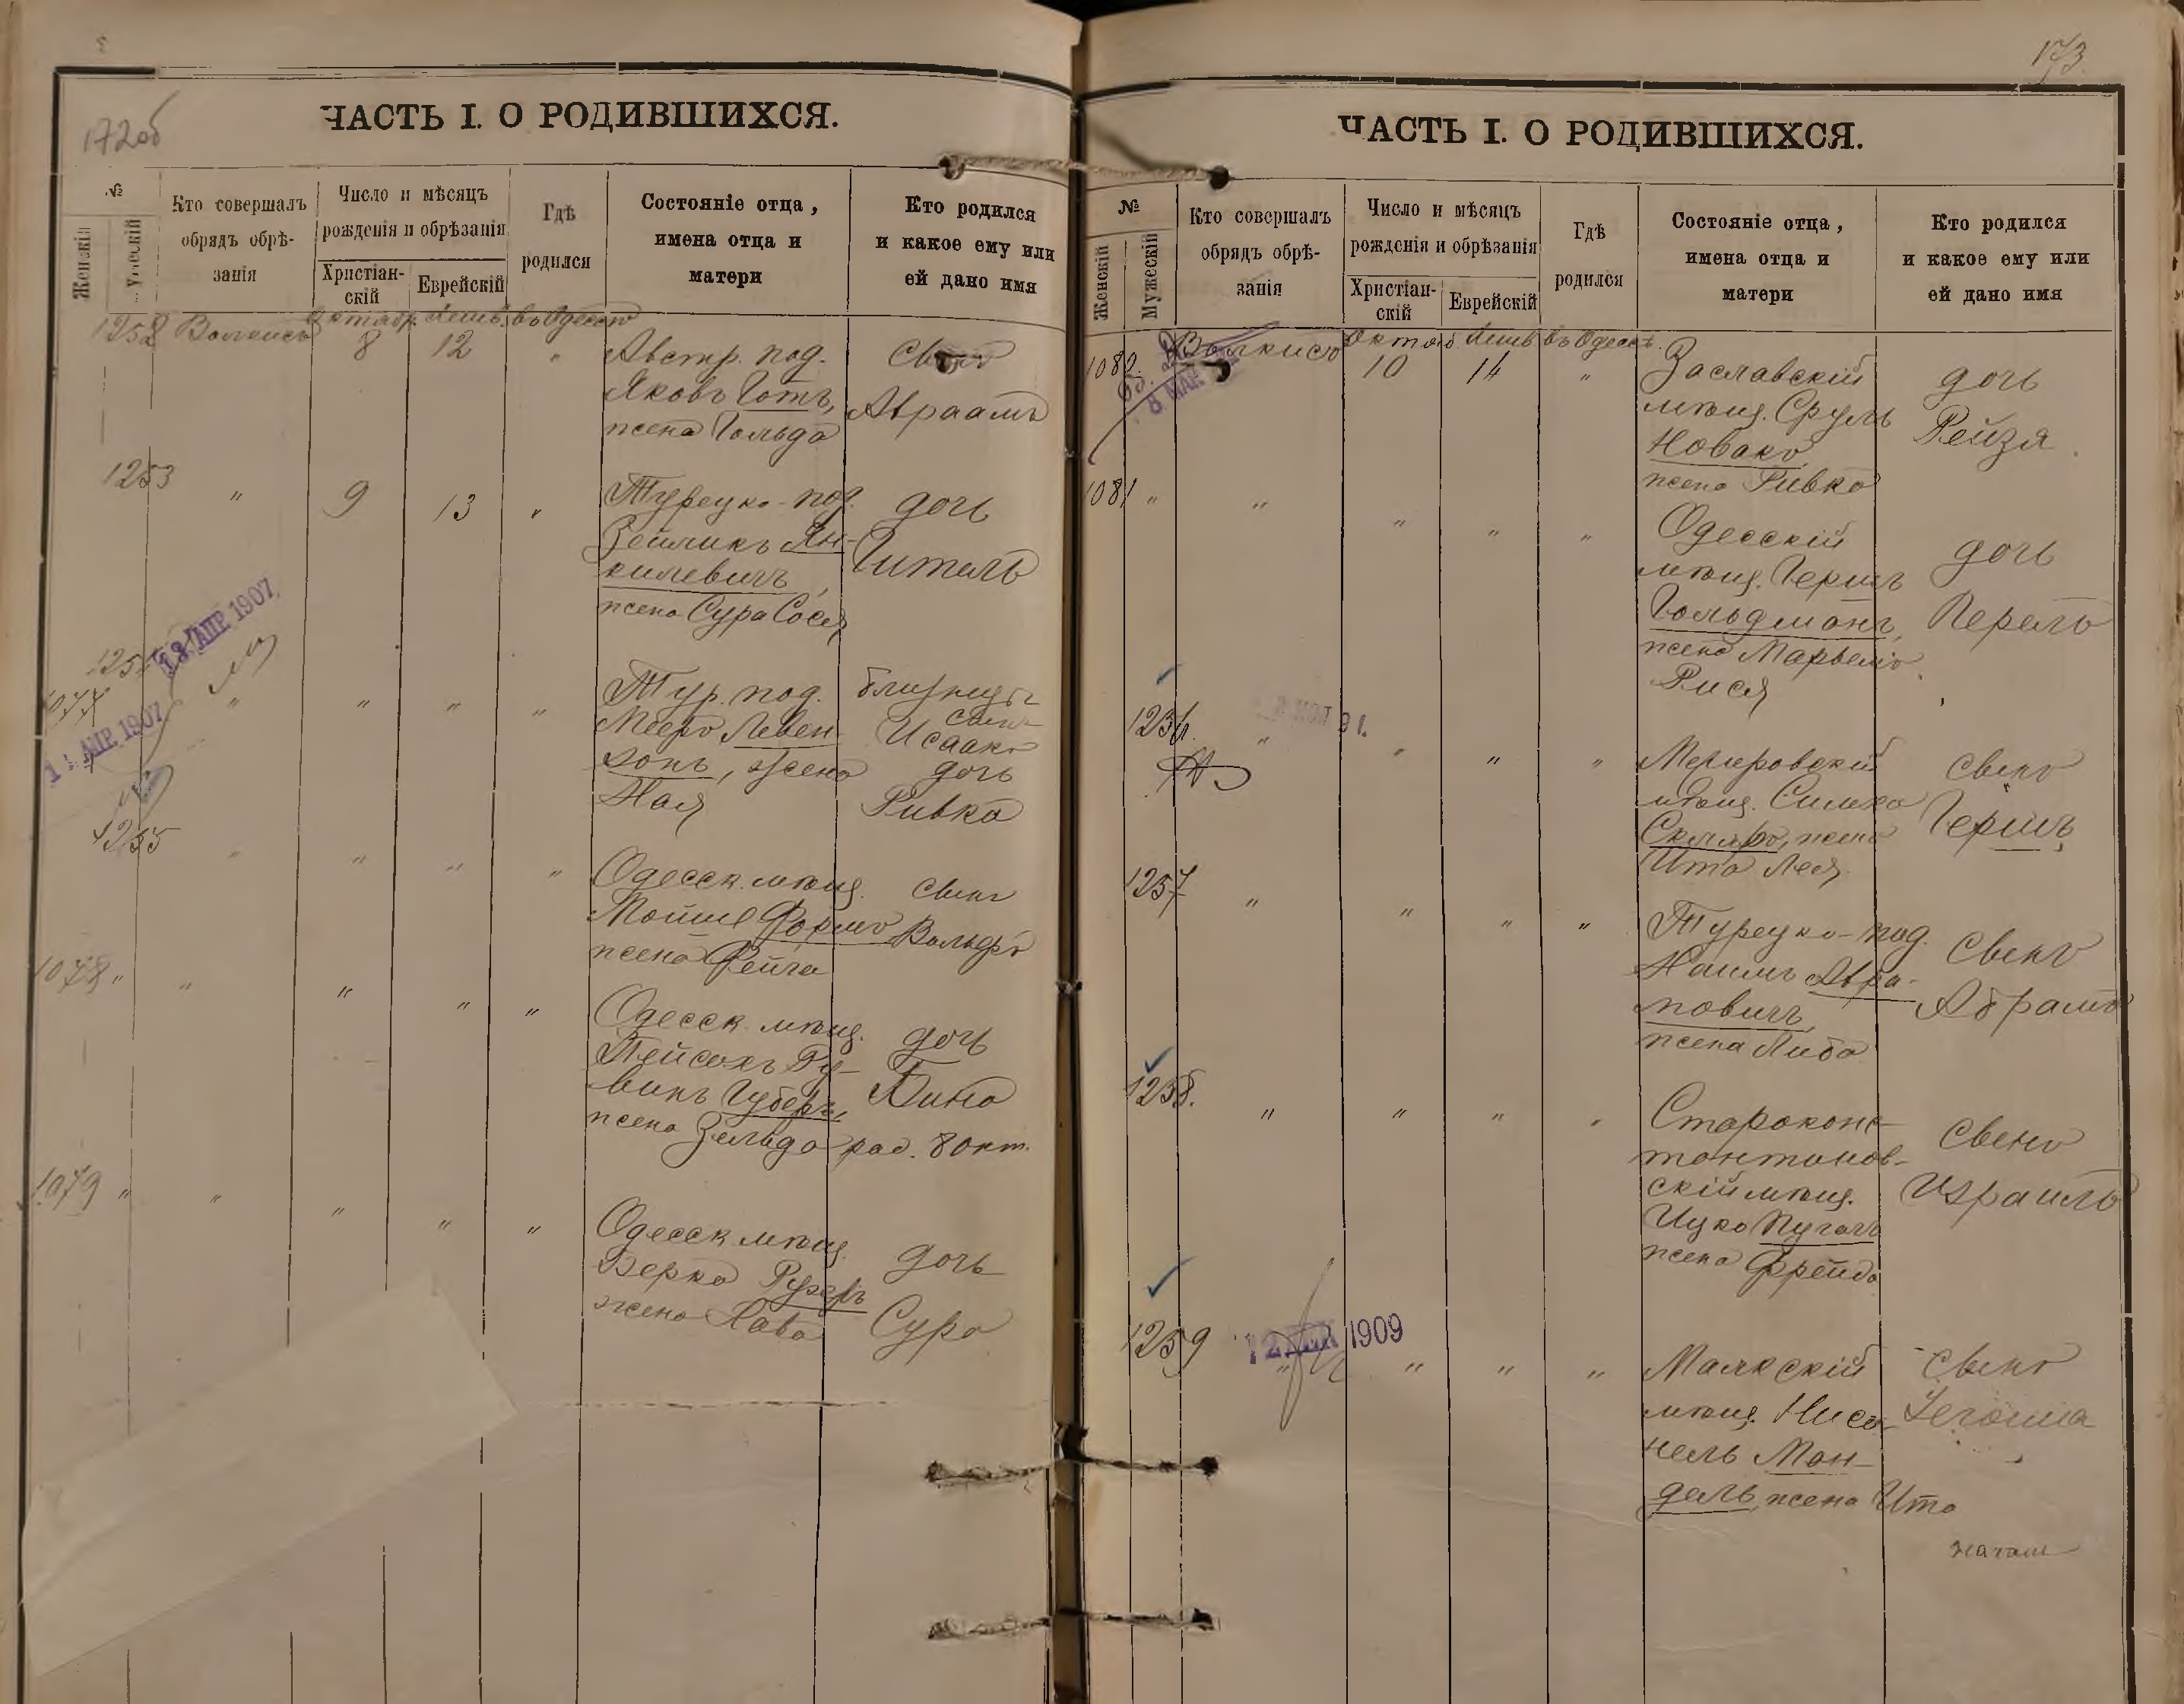 172об
ЧАСТЬ I. О РОДИВШИХСЯ.
№
Женскій
Мужескій
Кто совершалъ
обрядъ обрѣ-
занія
Число и мѣсяцъ
рожденія и обрѣзанія
Христіан-
скій
Еврейскій
Гдѣ
родился
Состояніе отца,
имена отца и
матери
Кто родился
и какое ему или
ей дано имя
1252 Октябр. въ Одессѣ
8 12 " Австр. под. Сынъ
Яковъ Готъ, Авраамъ
жена Гольда
1253 " 9 13 " Турецко-под. дочь
Зейликъ Ян- Гитель
килевичъ,
жена Сура Сося
18 АПР. 1907
1077 " " " " Тур. под. близнецы
сынъ
Мееръ Левен- Исаакъ
зонъ, жена дочь
Хая Ривка
АПР. 1907
1255 " " " " Одесск. мѣщ. сынъ
Мойше Формъ Вольфъ
жена Фейга
1078 " " " " " Одесск. мѣщ. дочь
Пейсахъ Ру- Бина
винъ Губеръ,
жена Зельда род. 8 окт.
1079 " " " " " Одесск. мѣщ. дочь
Берко Рузеръ Сура
жена Хава
173
ЧАСТЬ I. О РОДИВШИХСЯ.
№
Женскій
Мужескій
Кто совершалъ
обрядъ обрѣ-
занія
Число и мѣсяцъ
рожденія и обрѣзанія
Христіан-
скій
Еврейскій
Гдѣ
родился
Состояніе отца,
имена отца и
матери
Кто родился
и какое ему или
ей дано имя
Октяб. въ Одессѣ.
8 МАР.
10 14 " Заславскій дочь
мѣщ. Сруль Рейзя
Новакъ
жена Ривка
1081 " " " " " Одесскій дочь
мѣщ. Гершъ Перель
Гольдманъ,
жена Марьемъ
Рися
1256. " " " " сынъ
мѣщ. Симха Гершъ
Скляръ, жена
Ита Лея
1257 " " " " Турецко-под. Сынъ
Хаимъ Абра- Абрамъ
мовичъ,
жена Либа
1258. " " " " Староконс- Сынъ
тантинов- Израиль
скій мѣщ.
Ицко Пугачъ
жена Фрейда
1259 12 ДЕК 1909
" " " " Маякскій Сынъ
мѣщ. Ниса- Iегошиа
нель Ман-
дель, жена Ита